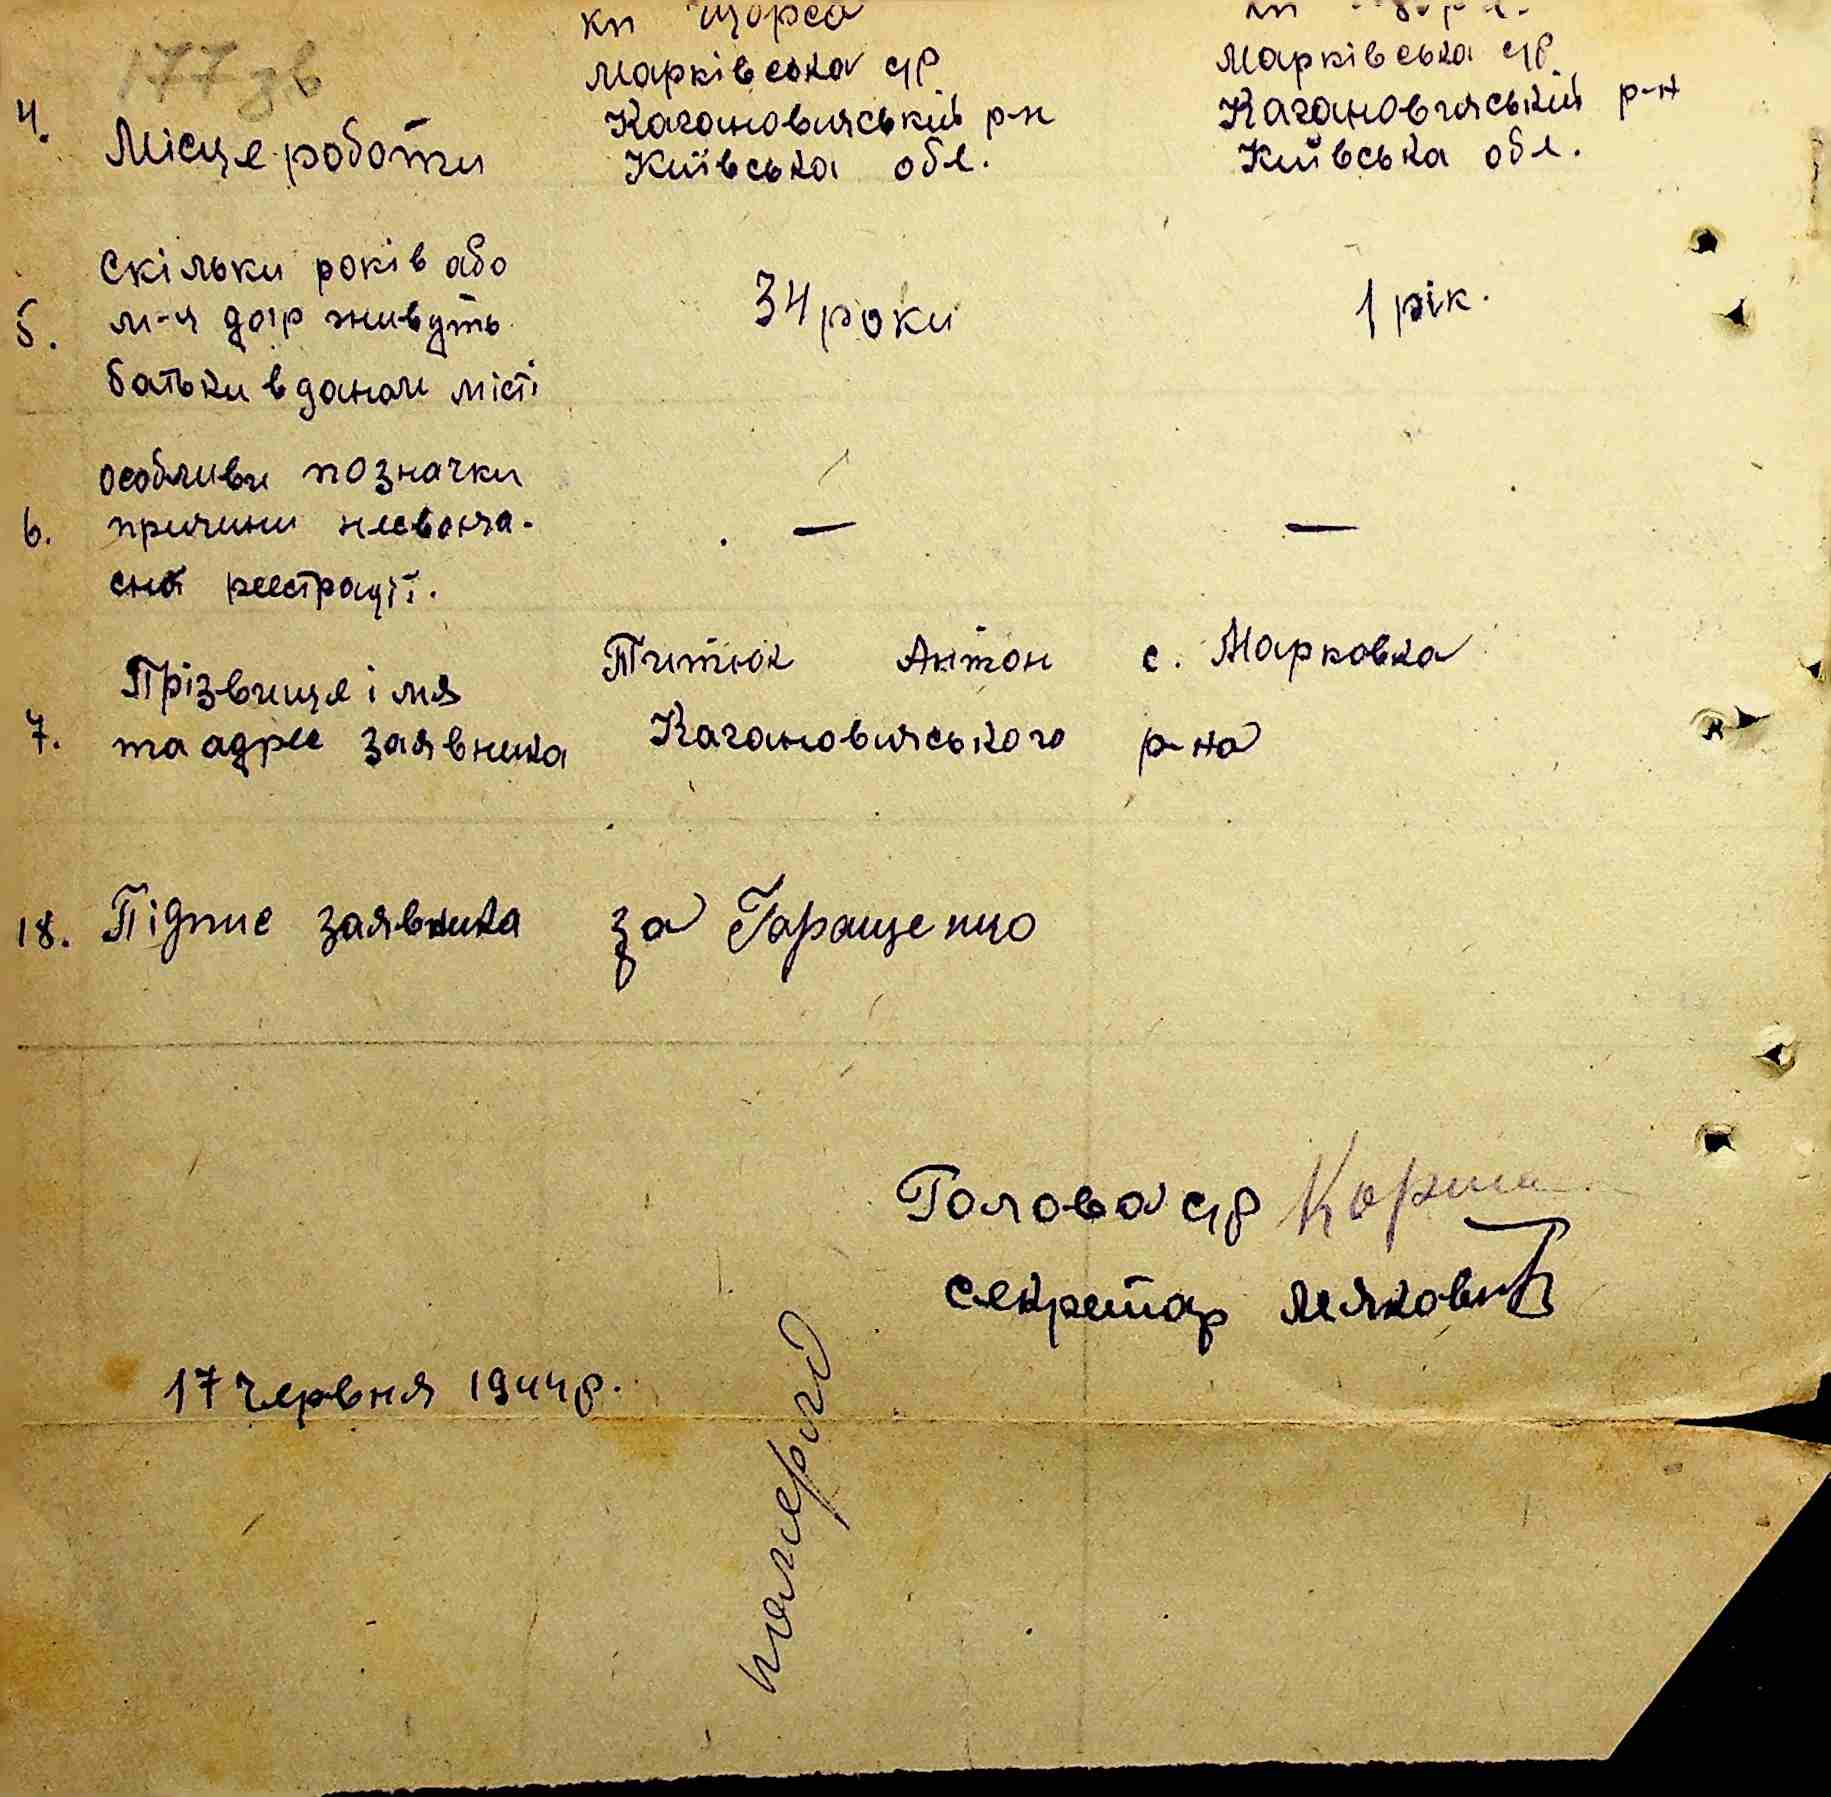 177 зв
кп Щорса
Марківська с/р Марківська с/р
4. Місце роботи Кагановичський р-н Кагановичський р-н
Київська обл. Київська обл.
Скільки років або
5. м-ч дор живуть 34 роки 1 рік.
батьки в даном місті
особливи позначки
6. причини несвоеча- — —
сної реестрації.
Прізвище імя Титюк Антон с. Марковка
7. та адрес заявника Кагановичського р-на
18. Підпис заявника за Гаращенко
Голова с/р
Секретар
17 червня 1944 р.